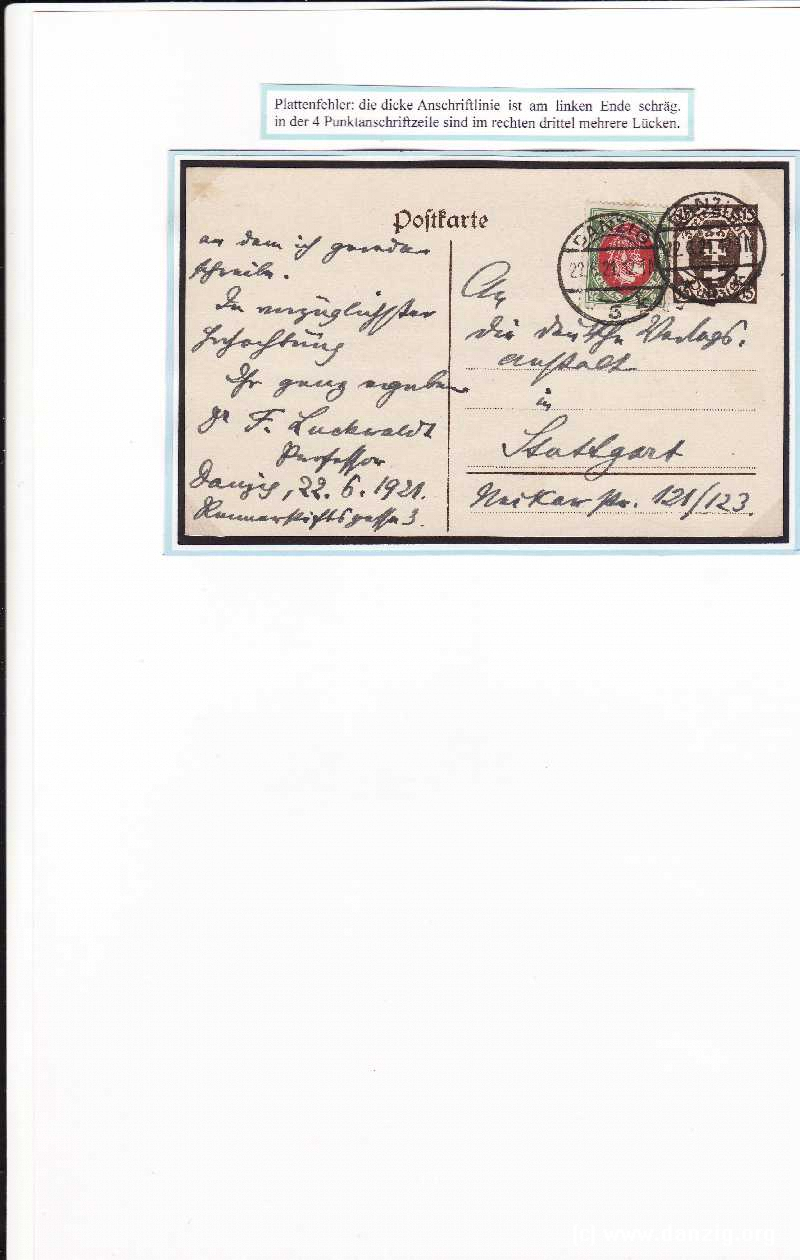 Plattenfehler: die dicke Anschriftlinie ist am linken Ende schräg.
in der 4 Punktanschriftzeile sind im rechten drittel mehrere Lücken.
Postkarte
an dem ich gerade
schreibe.
In vorzüglichster
Hochachtung
Ihr ganz ergebener
Dr F. Luckwaldt
Professor
Danzig, 22. 6. 1921.
3.
DANZIG
DANZIG
An
die deutsche Verlags-
anstalt
in
Stuttgart
Neckarstr. 121/123.
(c) www.danzig.org